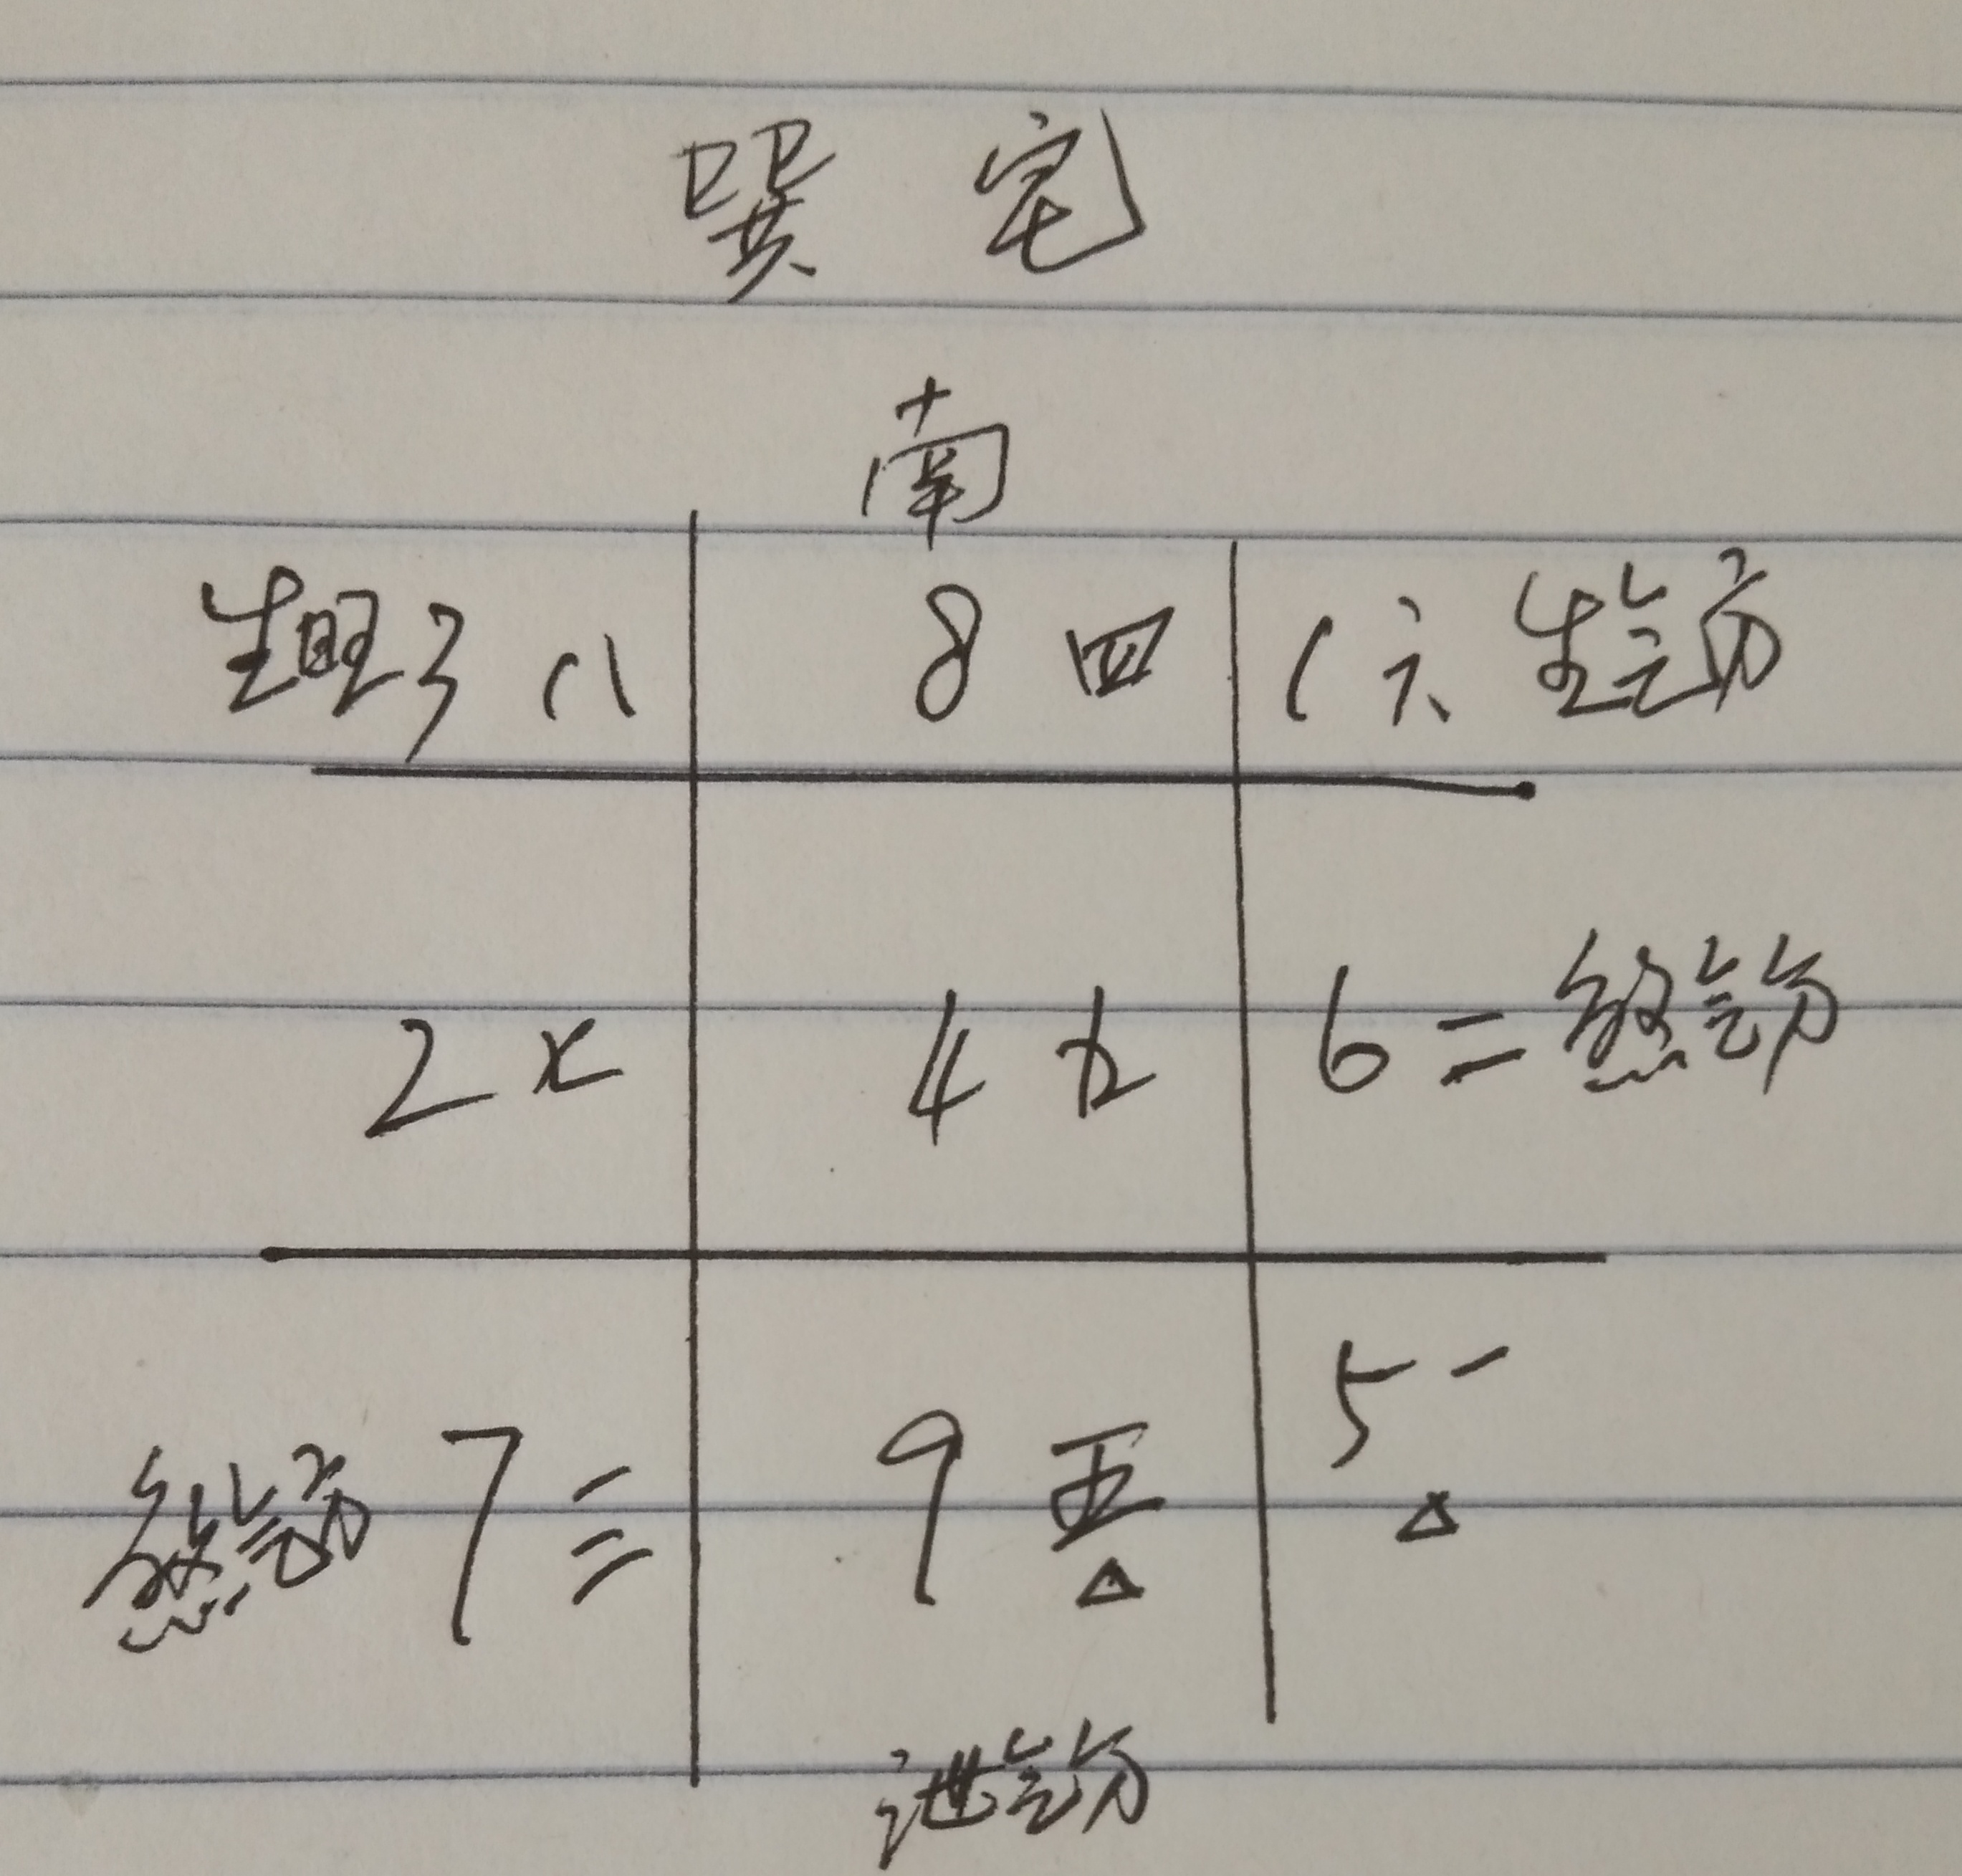 巽宅
南
生旺 3 八 8 四 1 六 生气方
2 七 4 九 6 二 煞气方
煞气方 7 三 9 五 5 一
△ △
泄气方